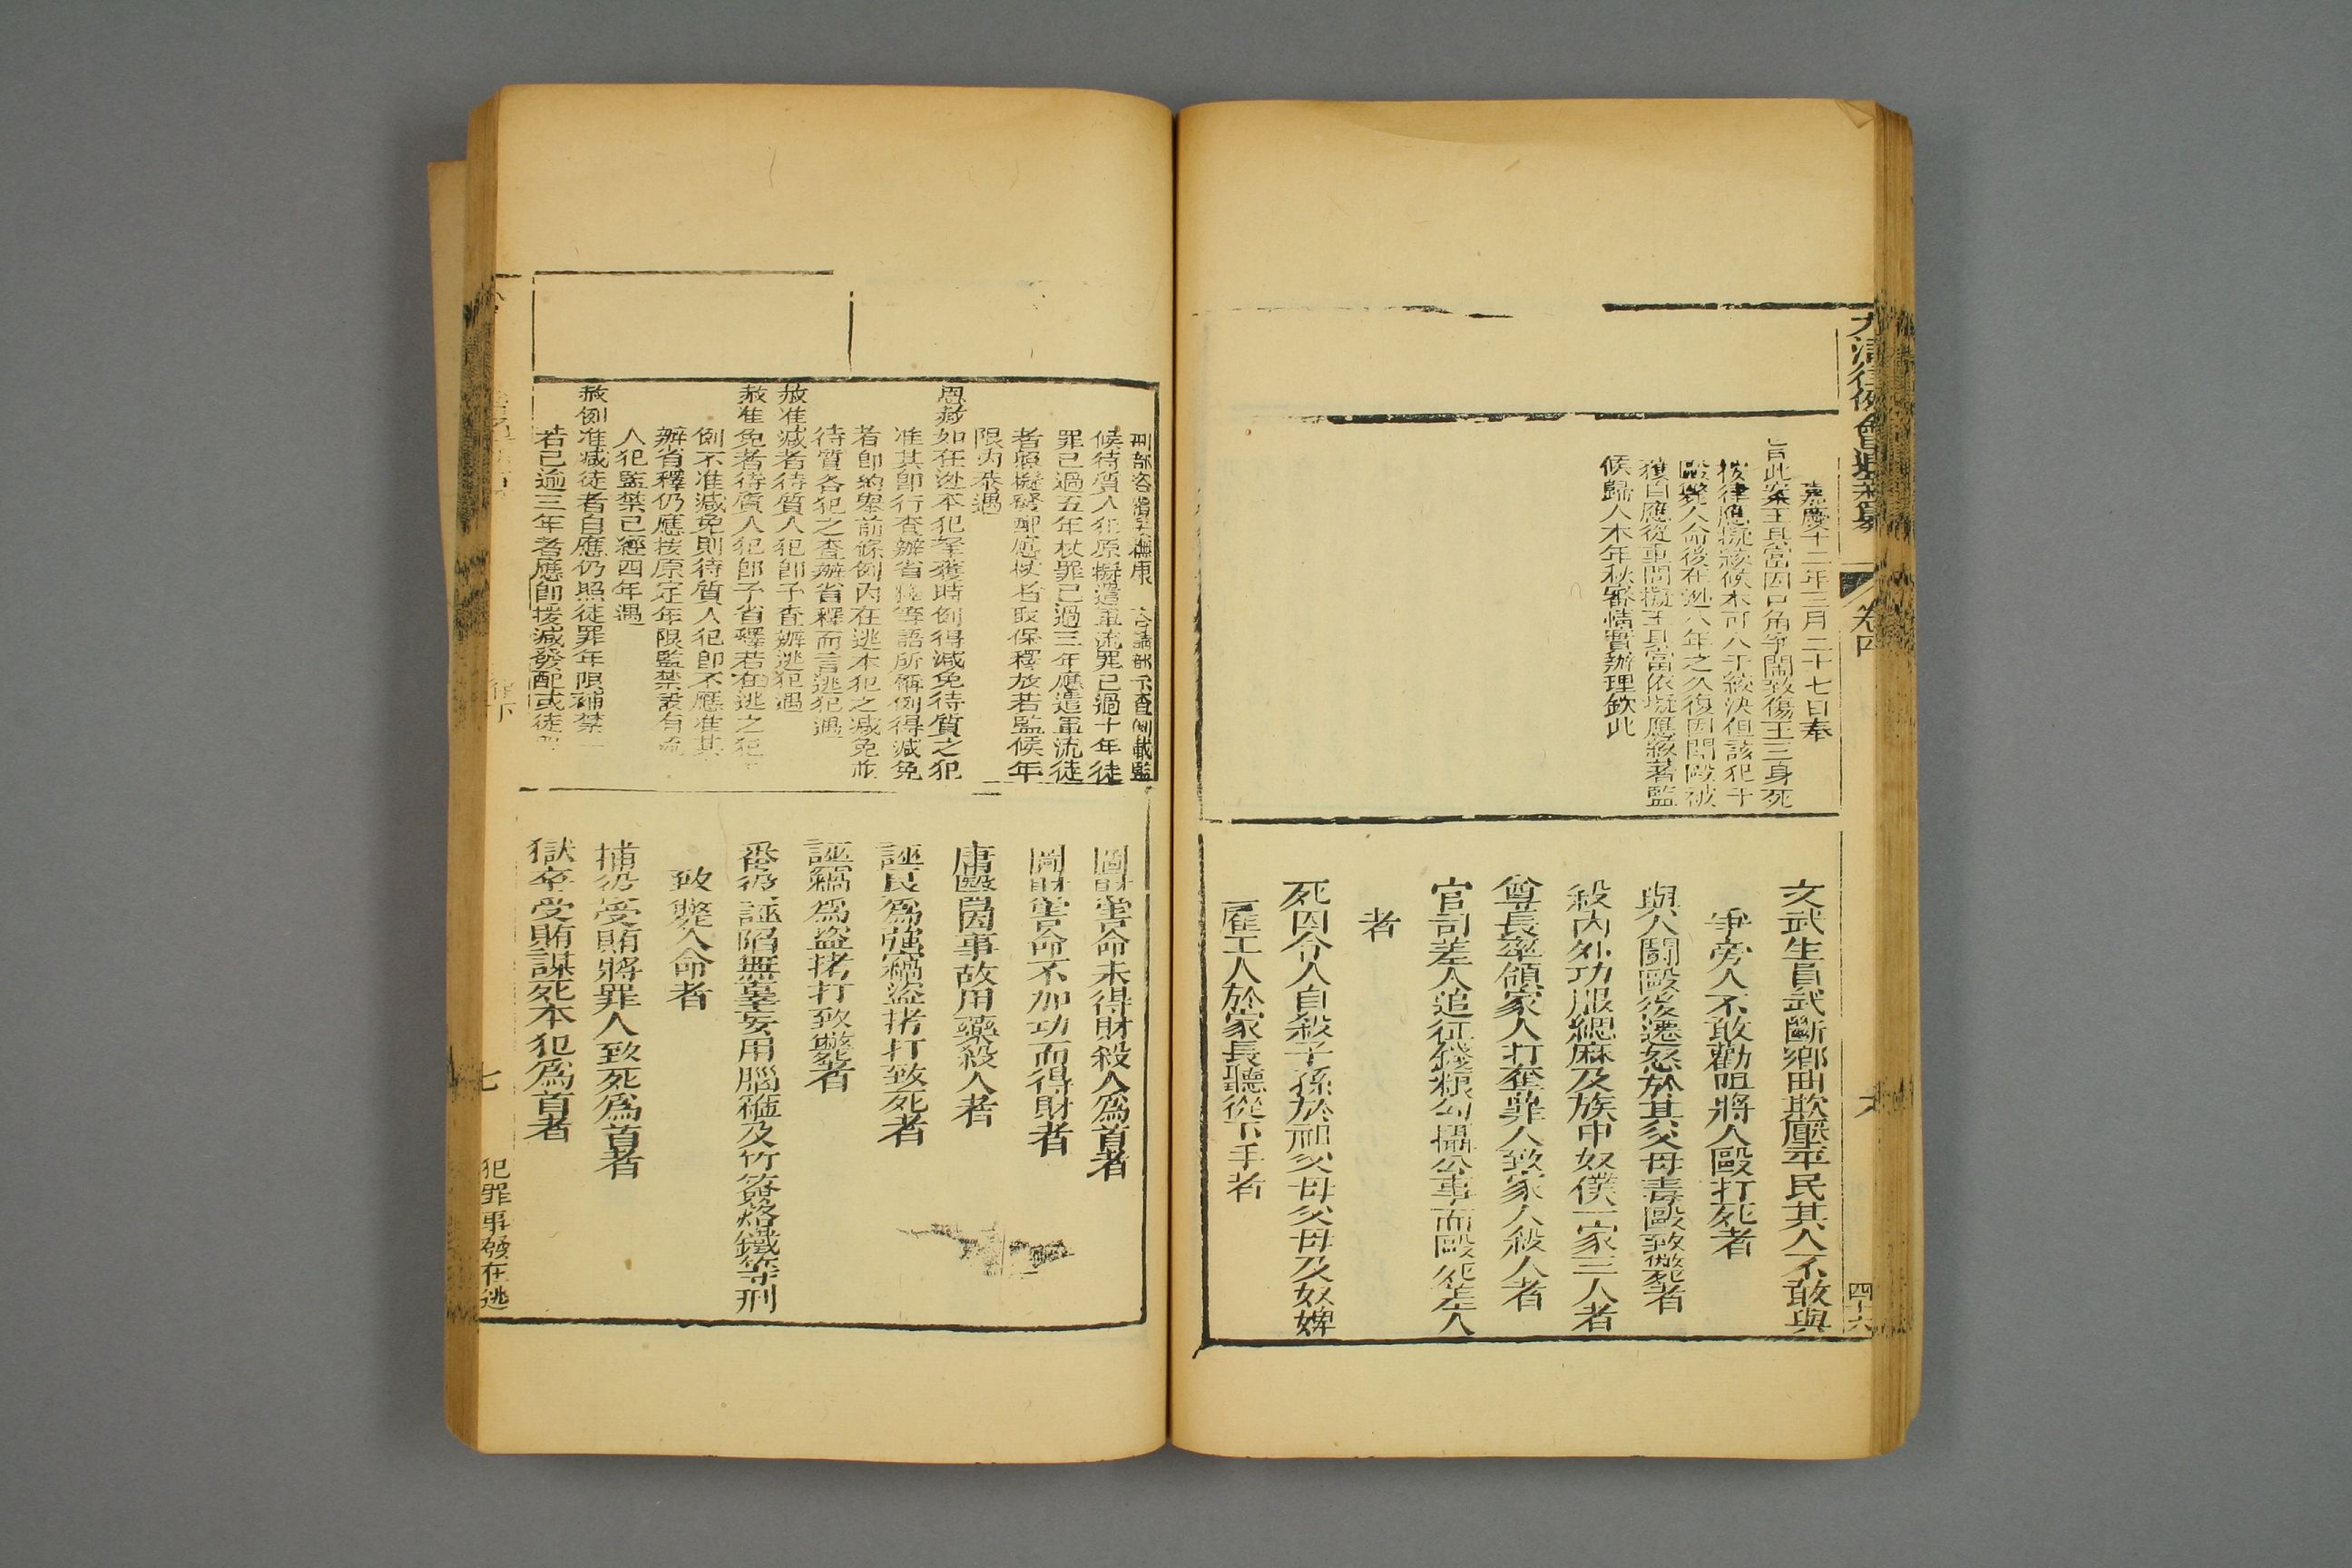 大清律例會通新纂
卷四
六
四十六
嘉慶十二年三月二十七日奉
旨此案王具當因口角爭鬧致傷王三身死
按律應擬絞候本可入于絞決但該犯于
毆斃人命後在逃八年之久復因鬧毆被
獲自應從重問擬王具當依擬應絞著監
候歸入本年秋審情實辦理欽此
文武生員武斷鄉曲欺壓平民其人不敢與
爭旁人不敢勸阻將人毆打死者
與人鬭毆後遷怒於其父母毒毆致斃者
殺內外功服緦麻及族中奴僕一家三人者
尊長率領家人打奪罪人致家人殺人者
官司差人追征錢糧勾攝公事而毆死差人
者
死囚令人自殺子孫於祖父母父母及奴婢
雇工人於家長聽從下手者
刑部咨 撫康 咨請部示查例載監
候待質人犯原擬遣軍流罪已過十年徒
罪已過五年杖罪已過三年應遣軍流徒
者照擬發配應杖者取保釋放若監候年
限內恭遇
恩赦如在逃本犯拏獲時例得減免待質之犯
准其即行查辦省釋等語所稱例得減免
者即約舉前條例內在逃本犯之減免並
待質各犯之查辦省釋而言逃犯遇
赦准減者待質人犯即予查辦逃犯遇
赦准免者待質人犯即予省釋若在逃之犯
例不准減免則待質人犯即不應准其
辦省釋仍應按原定年限監禁設有流
人犯監禁已經四年遇
赦例准減徒者自應仍照徒罪年限補禁一
若已逾三年者應即援減發配或徒
圖財害命未得財殺人為首者
圖財害命不加功而得財者
庸醫因事故用藥殺人者
誣民為強竊盜拷打致死者
誣竊為盜拷打致斃者
番役誣陷無辜妄用腦箍及竹籤烙鐵等刑
致斃人命者
捕役受賄將罪人致死為首者
獄卒受賄謀死本犯為首者
七
犯罪事發在逃